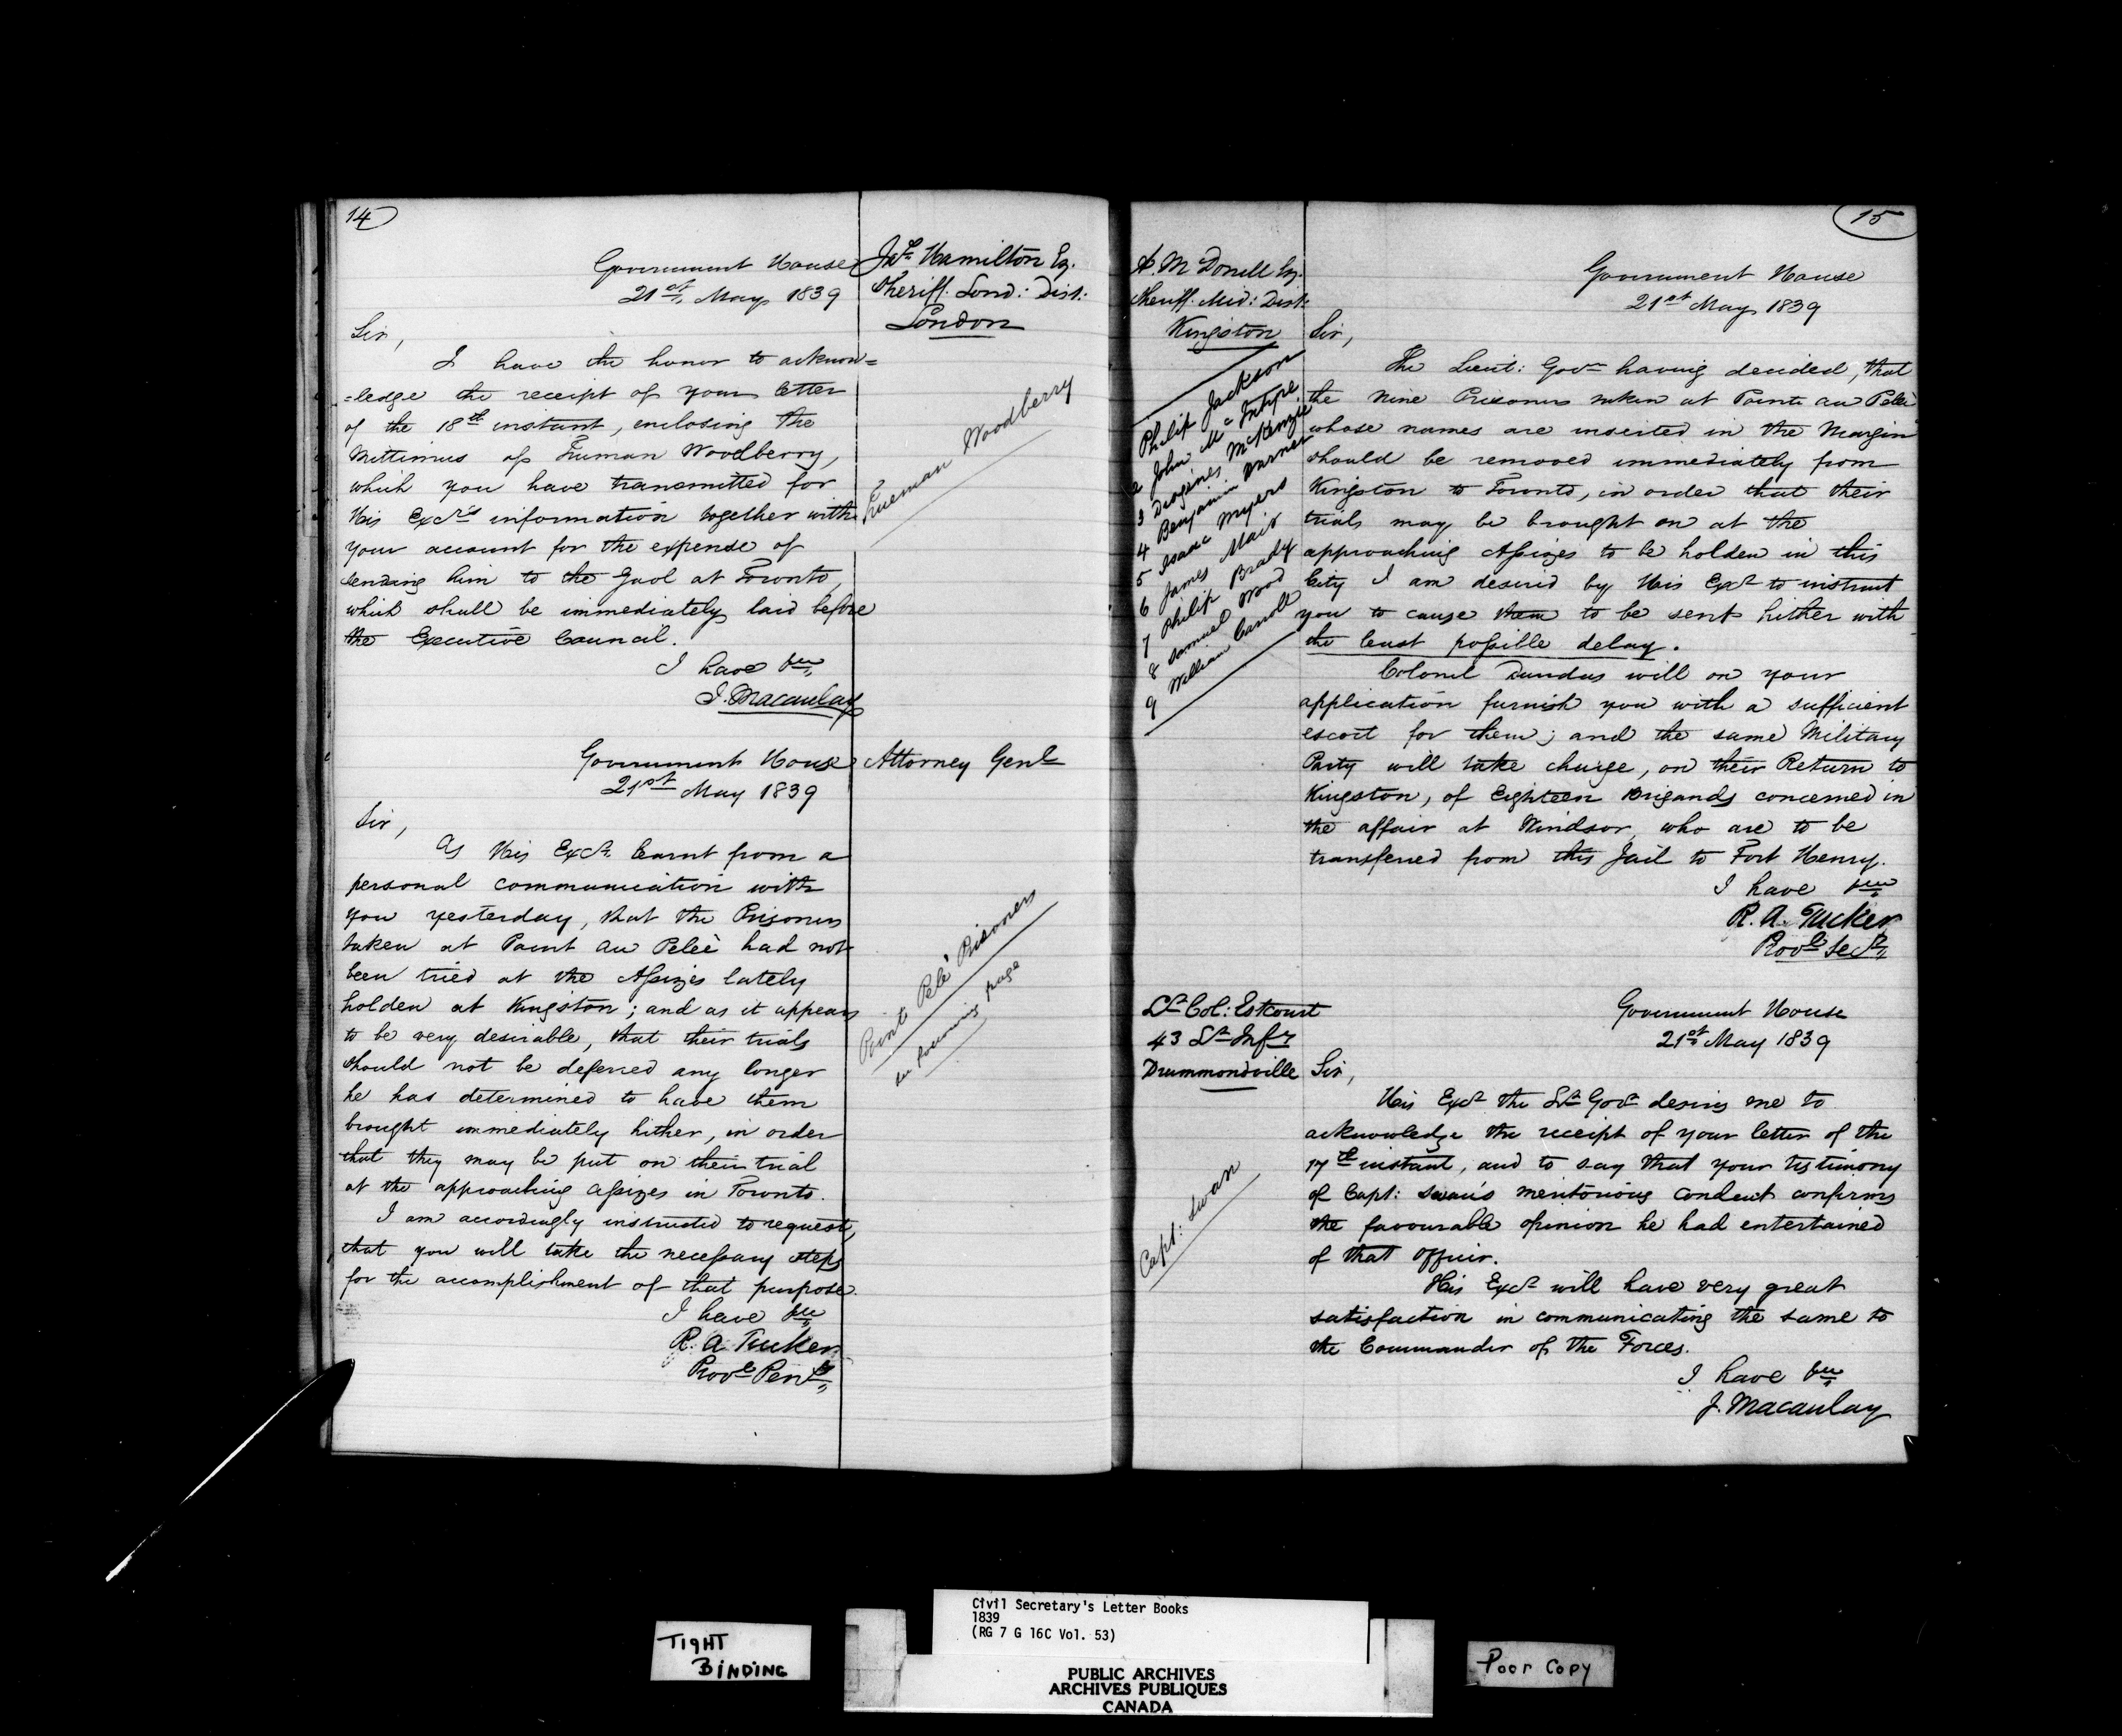 14
Government House
21st May 1839
Jas. Hamilton Eq.
Sheriff. Lond: Dist:
London
Sir,
I have the honor to acknow=
=ledge the receipt of your letter
of the 18th instant, enclosing the
Mittimus of Truman Woodberry,
which you have transmitted for
His Excy's information together with
your account for the expense of
sending him to the Gaol at Toronto,
which shall be immediately laid before
the Executive Council.
I have &c
J. Macaulay
Trueman Woodberry
Government House
21st May 1839
Attorney Genl
Sir,
As His Excy. learnt from a
personal communication with
you yesterday, that the Prisoners
taken at Point au Peleè had not
been tried at the Assizes lately
holden at Kingston; and as it appears
to be very desirable, that their trials
should not be deferred any longer
he has determined to have them
brought immediately hither, in order
that they may be put on their trial
at the approaching Assizes in Toronto.
I am accordingly instructed to request,
that you will take the necessary steps
for the accomplishment of that purpose.
I have &c
R. A Tucker
Provl
Point Pelè Prisoners
page
15
A. McDonell Eq.
Sheriff. Mid: Dist:
Kingston
Government House
21st May 1839
Philip Jackson
2 John McIntyre
3 Diogines McKenzie
4 Benjamin Warner
5 Isaac Myers
6 James Mair
7 Philip Brady
8 Samuel Wood
9 William Carroll
Sir,
The Lieut: Govr having decided, that
the nine Prisoners taken at Pointe au Peleè
whose names are inserted in the Margin
should be removed immediately from
Kingston to Toronto, in order that their
trials may be brought on at the
approaching Assizes to be holden in this
City I am desired by His Excy to instruct
you to cause them to be sent hither with
the least possible delay.
Colonel Dundas will on your
application furnish you with a sufficient
escort for them; and the same Military
Party will take charge, on their Return to
Kingston, of Eighteen Brigands concerned in
the affair at Windsor, who are to be
transferred from this Jail to Fort Henry.
I have &c
R. A. Tucker
Provl Secy
Lt Col: Estcourt
43 Lt Infy
Drummondville
Government House
21st May 1839
Sir,
His Excy the Lt Govr desires me to
acknowledge the receipt of your letter of the
17th instant, and to say that your testimony
of Capt: Swan's meritorious conduct confirms
the favourable opinion he had entertained
of that officer.
His Excy will have very great
satisfaction in communicating the same to
the Commander of the Forces.
I have &c
J. Macaulay
Capt: Swan
TIGHT
BINDING
Civil Secretary's Letter Books
1839
(RG 7 G 16C Vol. 53)
PUBLIC ARCHIVES
ARCHIVES PUBLIQUES
CANADA
Poor Copy